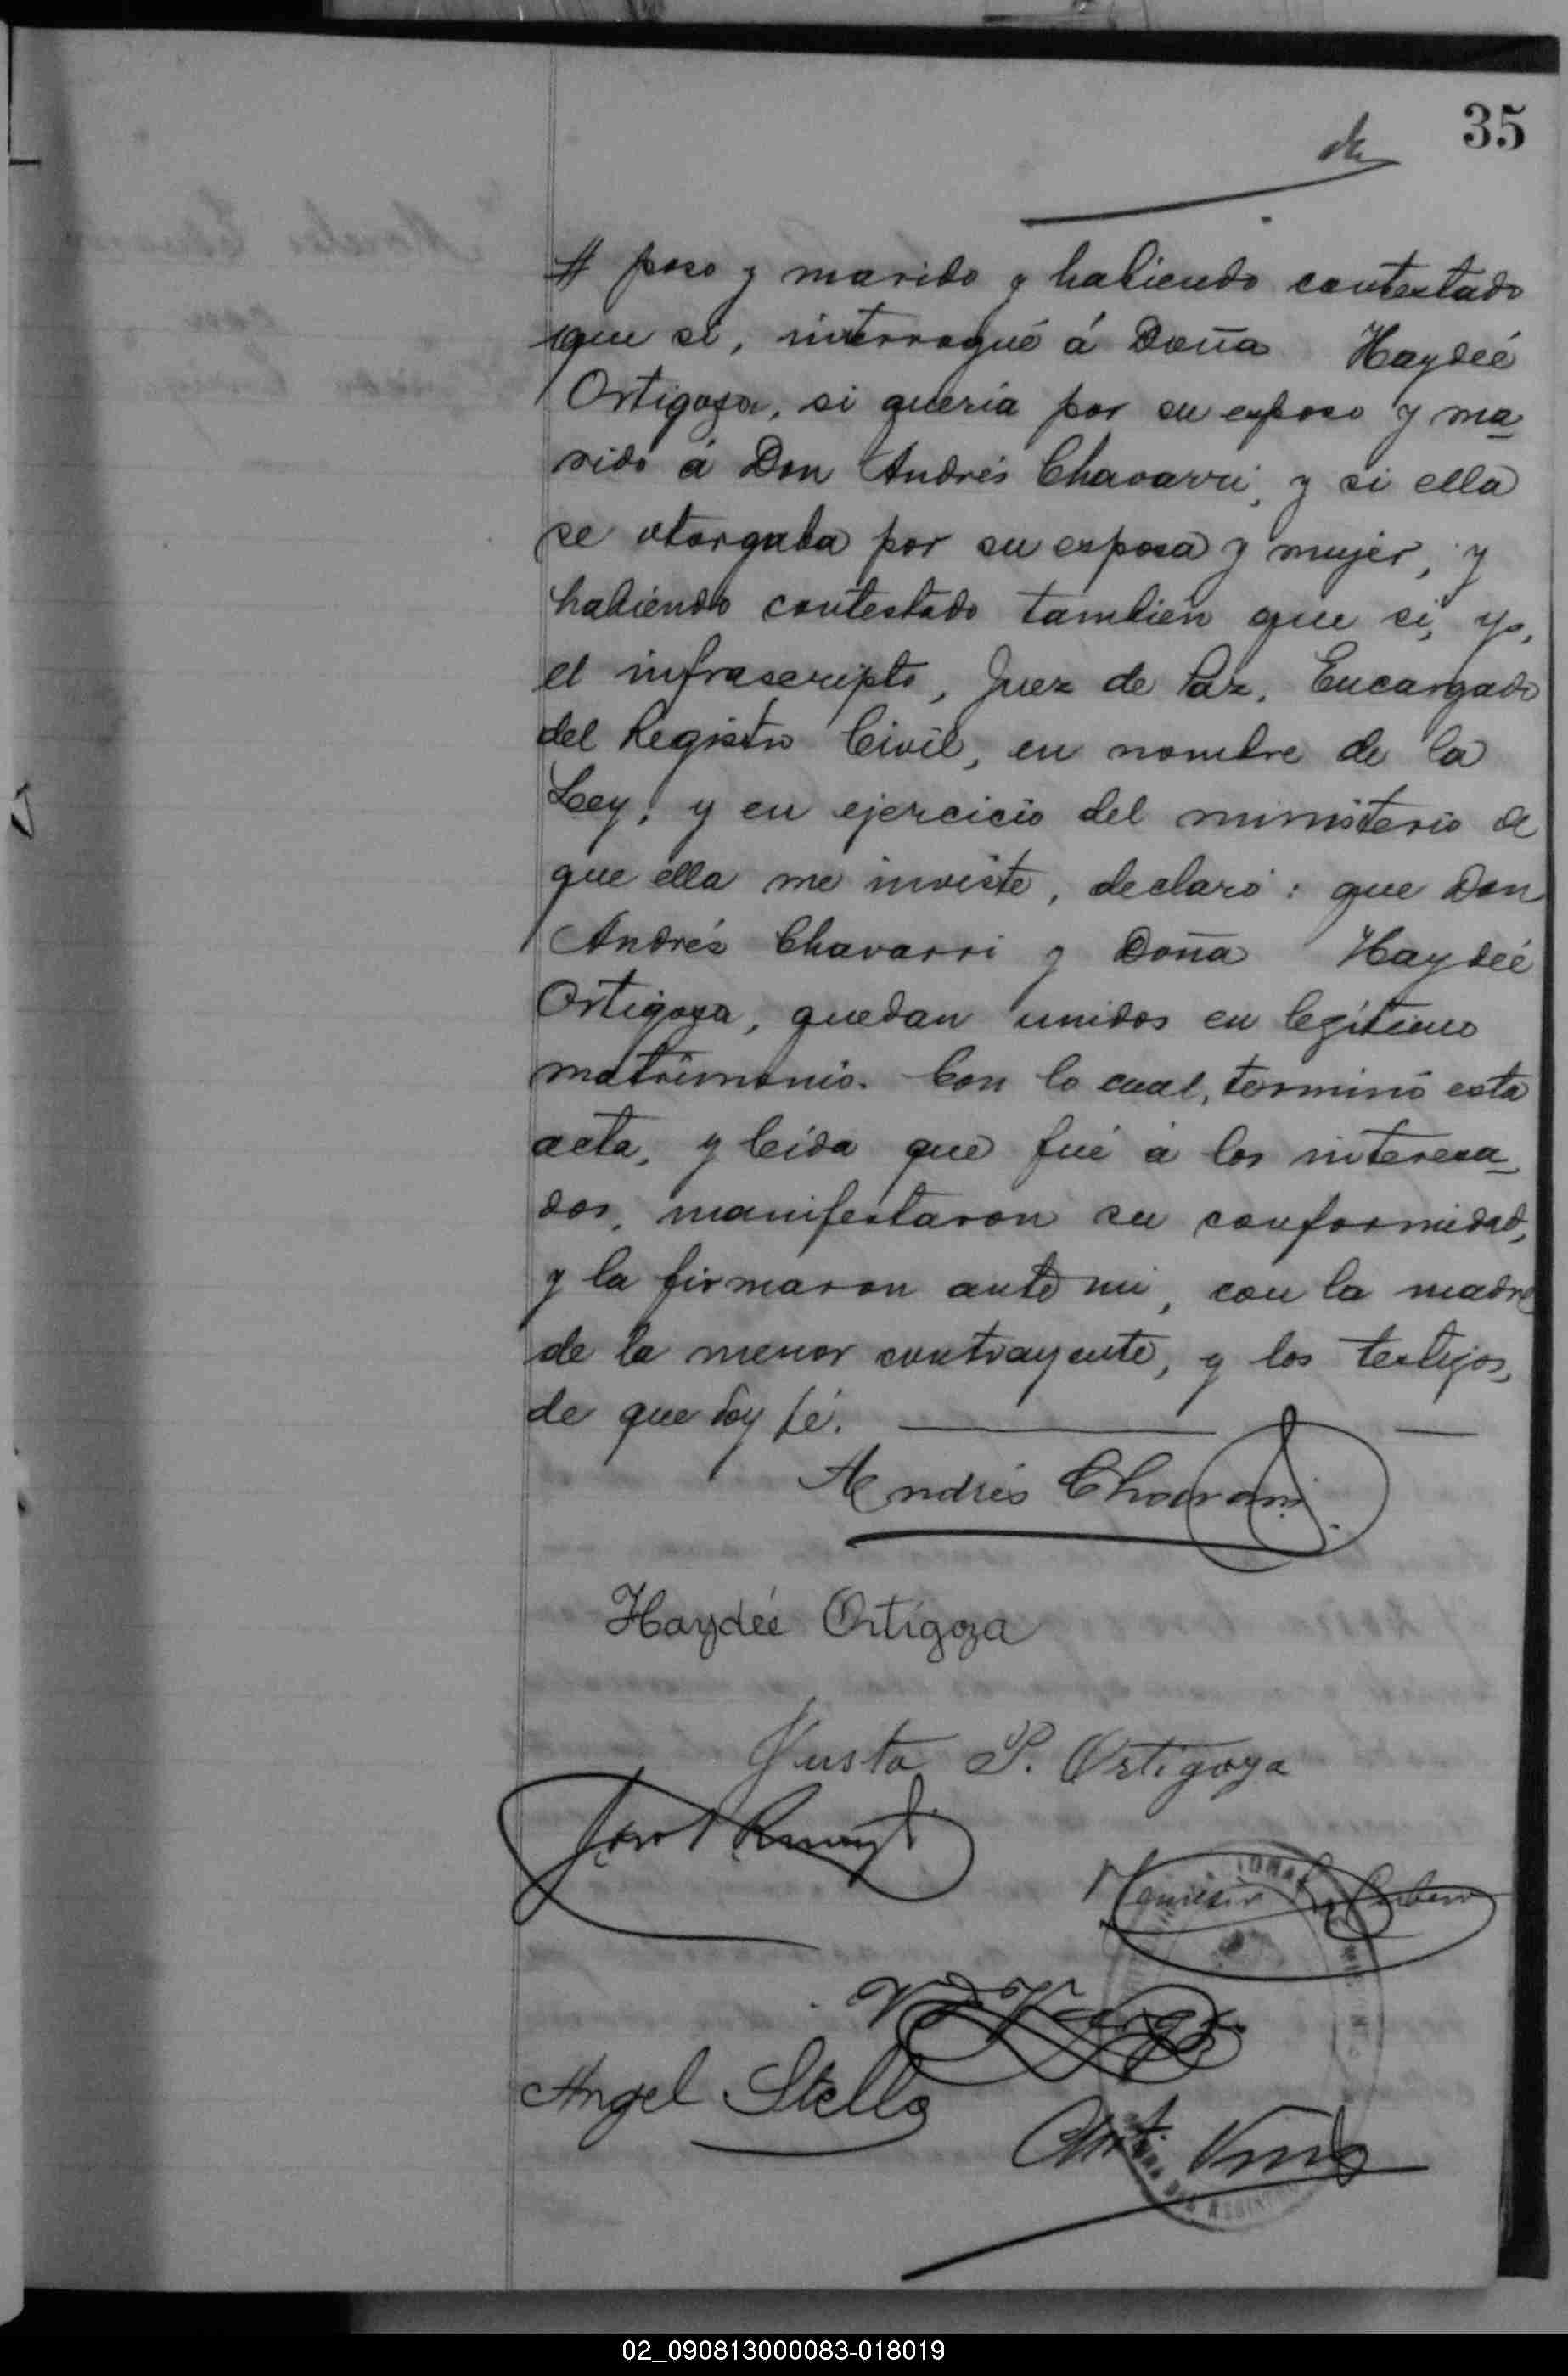 35
# poso y marido y habiendo contestado
que sí, interrogué á Doña Haydeé
Ortigoza, si quería por su esposo y ma-
rido á Don Andrés Chavarri, y si ella
se otorgaba por su esposa y mujer, y
habiendo contestado tambien que sí, yo,
el infrascripto, Juez de Paz, Encargado
del Registro Civil, en nombre de la
Ley, y en ejercicio del ministerio de
que ella me inviste, declaro: que Don
Andrés Chavarri y Doña Haydeé
Ortigoza, quedan unidos en legítimo
matrimonio. Con lo cual, terminó esta
acta, y leída que fué á los interesa-
dos, manifestaron su conformidad,
y la firmaron ante mi, con la madre
de la menor contrayente, y los testigos,
de que doy fé.
Andrés Chavarri
Haydeé Ortigoza
Justa P. Ortigoza
Angel Stella
02_090813000083-018019